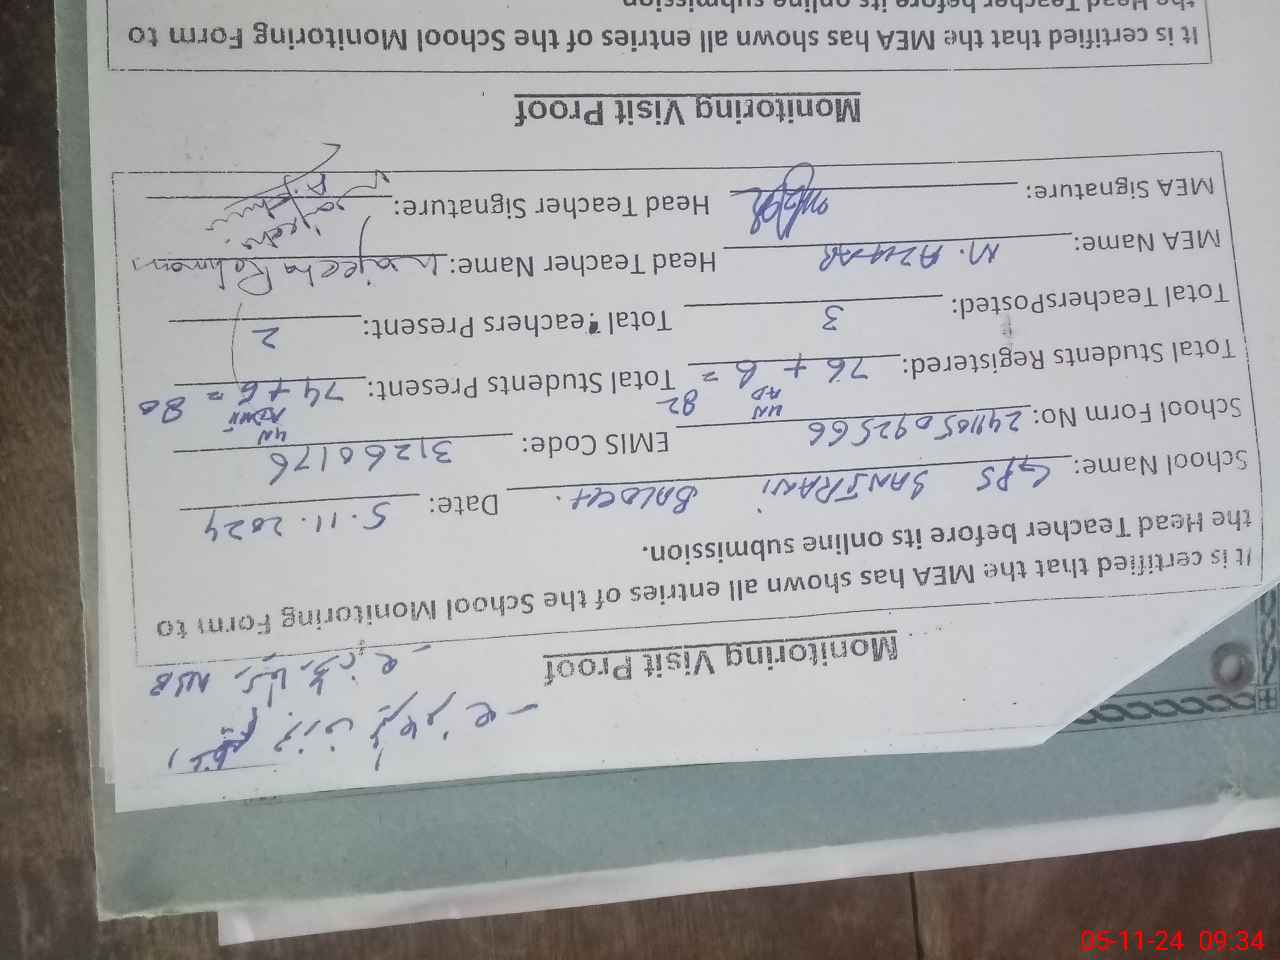 Monitoring Visit Proof
It is certified that the MEA has shown all entries of the School Monitoring Form to
the Head Teacher before its online submission.
School Name: GPS SANJRANI BALOCH. Date: 5.11.2024
School Form No: 241105092566 EMIS Code: 31260176
UN AD UN ADMIT
Total Students Registered: 76 + 6 = 82 Total Students Present: 74 + 6 = 80
Total TeachersPosted: 3 Total Teachers Present: 2
MEA Name: M. AZHAR Head Teacher Name: Wajeeha Rehman
MEA Signature: Head Teacher Signature:
Monitoring Visit Proof
It is certified that the MEA has shown all entries of the School Monitoring Form to
the Head Teacher before its online submission
05-11-24 09:34